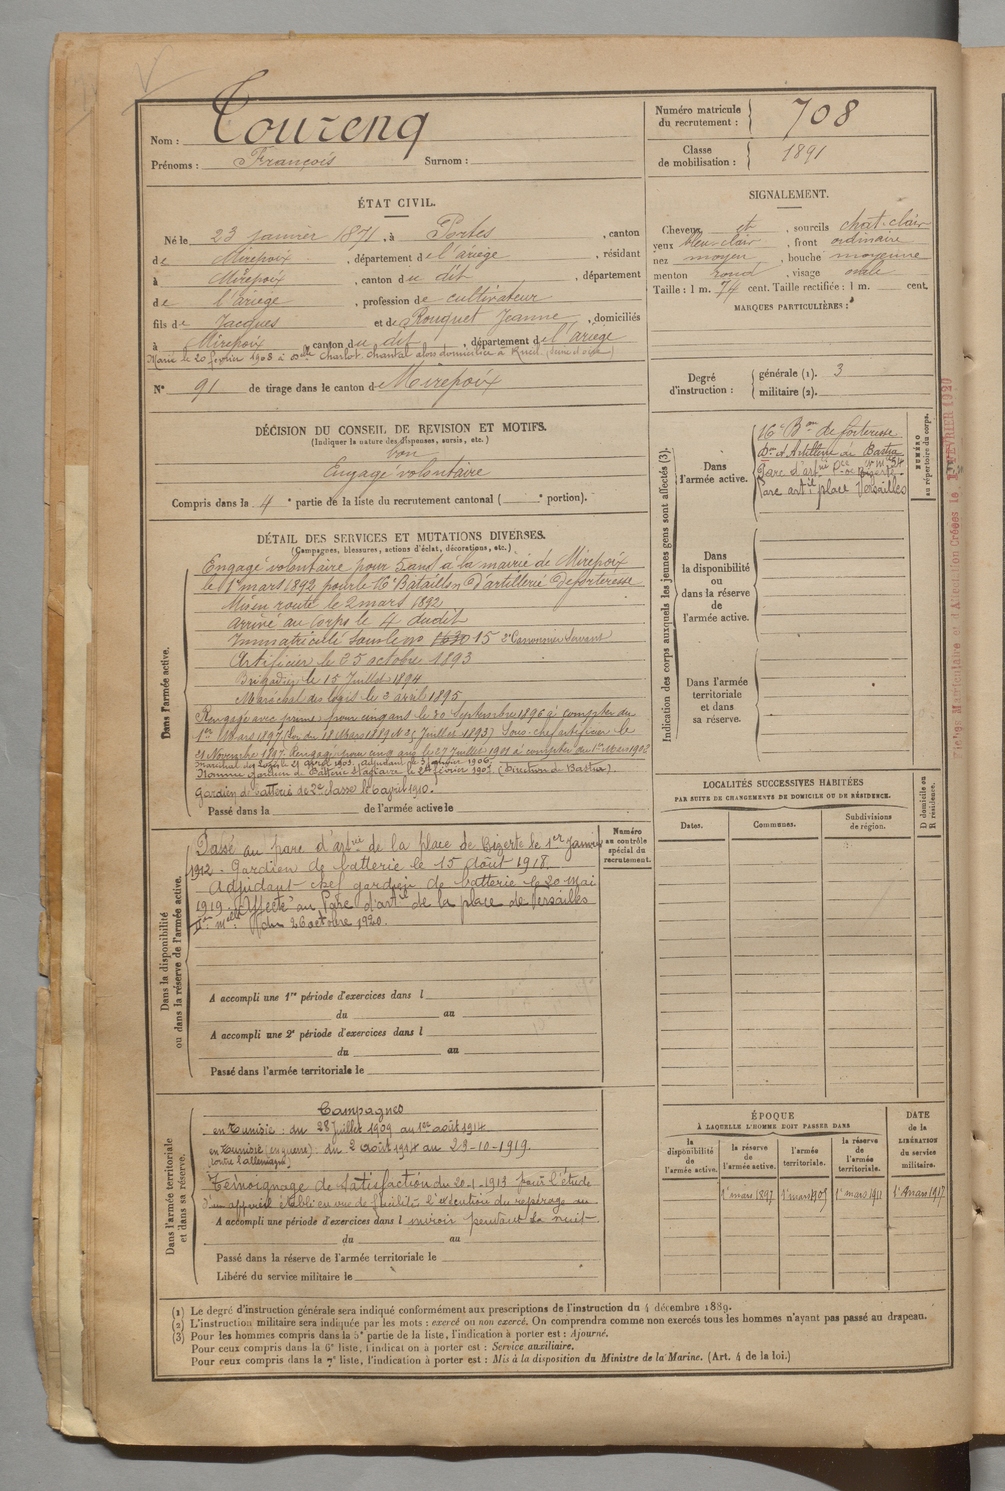 Nom : Tourenq
Prénoms : François Surnom :
Numéro matricule du recrutement : 708
Classe de mobilisation : 1891
ÉTAT CIVIL.
Né le 23 janvier 1871, à Portes, canton
de Mirepoix, département de l'ariège, résidant
à Mirepoix, canton du dit, département
de l'ariège, profession de cultivateur
fils de Jacques et de Rouquet Jeanne, domiciliés
à Mirepoix, canton du dit, département de l'ariège
Marié le 20 février 1908 à Dlle Charlot Chantal alors domiciliée à Rueil (Seine et oise)
N° 91 de tirage dans le canton de Mirepoix
SIGNALEMENT.
Cheveux et, sourcils chat-clair
yeux bleu clair, front ordinaire
nez moyen, bouche moyenne
menton rond, visage ovale
Taille : 1 m. 74 cent. Taille rectifiée : 1 m. cent.
MARQUES PARTICULIÈRES :
Degré d'instruction : générale (1). 3
militaire (2).
DÉCISION DU CONSEIL DE REVISION ET MOTIFS.
(Indiquer la nature des dispenses, sursis, etc.)
bon
Engagé volontaire
Compris dans la 4e partie de la liste du recrutement cantonal ( e portion).
DÉTAIL DES SERVICES ET MUTATIONS DIVERSES.
(Campagnes, blessures, actions d'éclat, décorations, etc.)
Dans l'armée active.
Engagé volontaire pour 5 ans à la mairie de Mirepoix
le 1er mars 1892 pour le 16e Bataillon d'artillerie de forteresse
Mis en route le 2 mars 1892
arrivé au corps le 4 dudit
Immatriculé sous le no 15 2e Canonnier Servant
Artificier le 25 octobre 1893
Brigadier le 15 Juillet 1894
Maréchal des logis le 3 avril 1895
Rengagé avec prime pour cinq ans le 20 Septembre 1896 à compter du
1er Mars 1897 (Loi du 18 Mars 1889 Juillet 1893) Sous-chef artificier le
21 Novembre 1897. Rengagé pour cinq ans le 27 Juillet 1901 à compter du 1er Mars 1902
le 21 avril 1903. adjudant le 1906.
Nommé gardien de Batterie Stagiaire le février 1907. (Direction de Bastia).
Gardien de batterie de 2e classe le 6 avril 1910.
Passé dans la de l'armée active le
Dans la disponibilité ou dans la réserve de l'armée active.
Numéro au contrôle spécial du recrutement.
Passé au parc d'artrie de la place de Bizerte le 1er Janvier
1912 - Gardien de batterie le 15 Août 1918.
Adjudant chef gardien de batterie le 20 Mai
1919. Affecté au Parc d'artie de la place de Versailles
du 26 octobre 1920.
A accompli une 1re période d'exercices dans l
du au
A accompli une 2e période d'exercices dans l
du au
Passé dans l'armée territoriale le
Dans l'armée territoriale et dans sa réserve.
Campagnes
en Tunisie : du 28 Juillet 1909 au 1er août 1914
en Tunisie (en guerre) : du 2 août 1914 au 23-10-1919.
(contre l'allemagne)
Témoignage de Satisfaction du 20-1-1913 pour l'étude
d'un appareil établi en vue de faciliter l'exécution du repérage au
A accompli une période d'exercices dans l miroir pendant la nuit.
du au
Passé dans la réserve de l'armée territoriale le
Libéré du service militaire le
Indication des corps auxquels les jeunes gens sont affectés (3).
NUMÉRO au répertoire du corps.
Dans l'armée active.
16e Bon de forteresse
Don d'Artillerie de Bastia
Parc d'artie Pce de Bizerte
Parc artie place Versailles
Dans la disponibilité ou dans la réserve de l'armée active.
Dans l'armée territoriale et dans sa réserve.
LOCALITÉS SUCCESSIVES HABITÉES
PAR SUITE DE CHANGEMENTS DE DOMICILE OU DE RÉSIDENCE.
Dates. Communes. Subdivisions de région. D domicile ou R résidence.
ÉPOQUE
À LAQUELLE L'HOMME DOIT PASSER DANS
la disponibilité de l'armée active. la réserve de l'armée active. l'armée territoriale. la réserve de l'armée territoriale.
DATE de la LIBÉRATION du service militaire.
1er mars 1897 1er mars 1907 1er mars 1911 1er mars 1917
(1) Le degré d'instruction générale sera indiqué conformément aux prescriptions de l'instruction du 4 décembre 1889.
(2) L'instruction militaire sera indiquée par les mots : exercé ou non exercé. On comprendra comme non exercés tous les hommes n'ayant pas passé au drapeau.
(3) Pour les hommes compris dans la 5e partie de la liste, l'indication à porter est : Ajourné.
Pour ceux compris dans la 6e liste, l'indication à porter est : Service auxiliaire.
Pour ceux compris dans la 7e liste, l'indication à porter est : Mis à la disposition du Ministre de la Marine. (Art. 4 de la loi.)